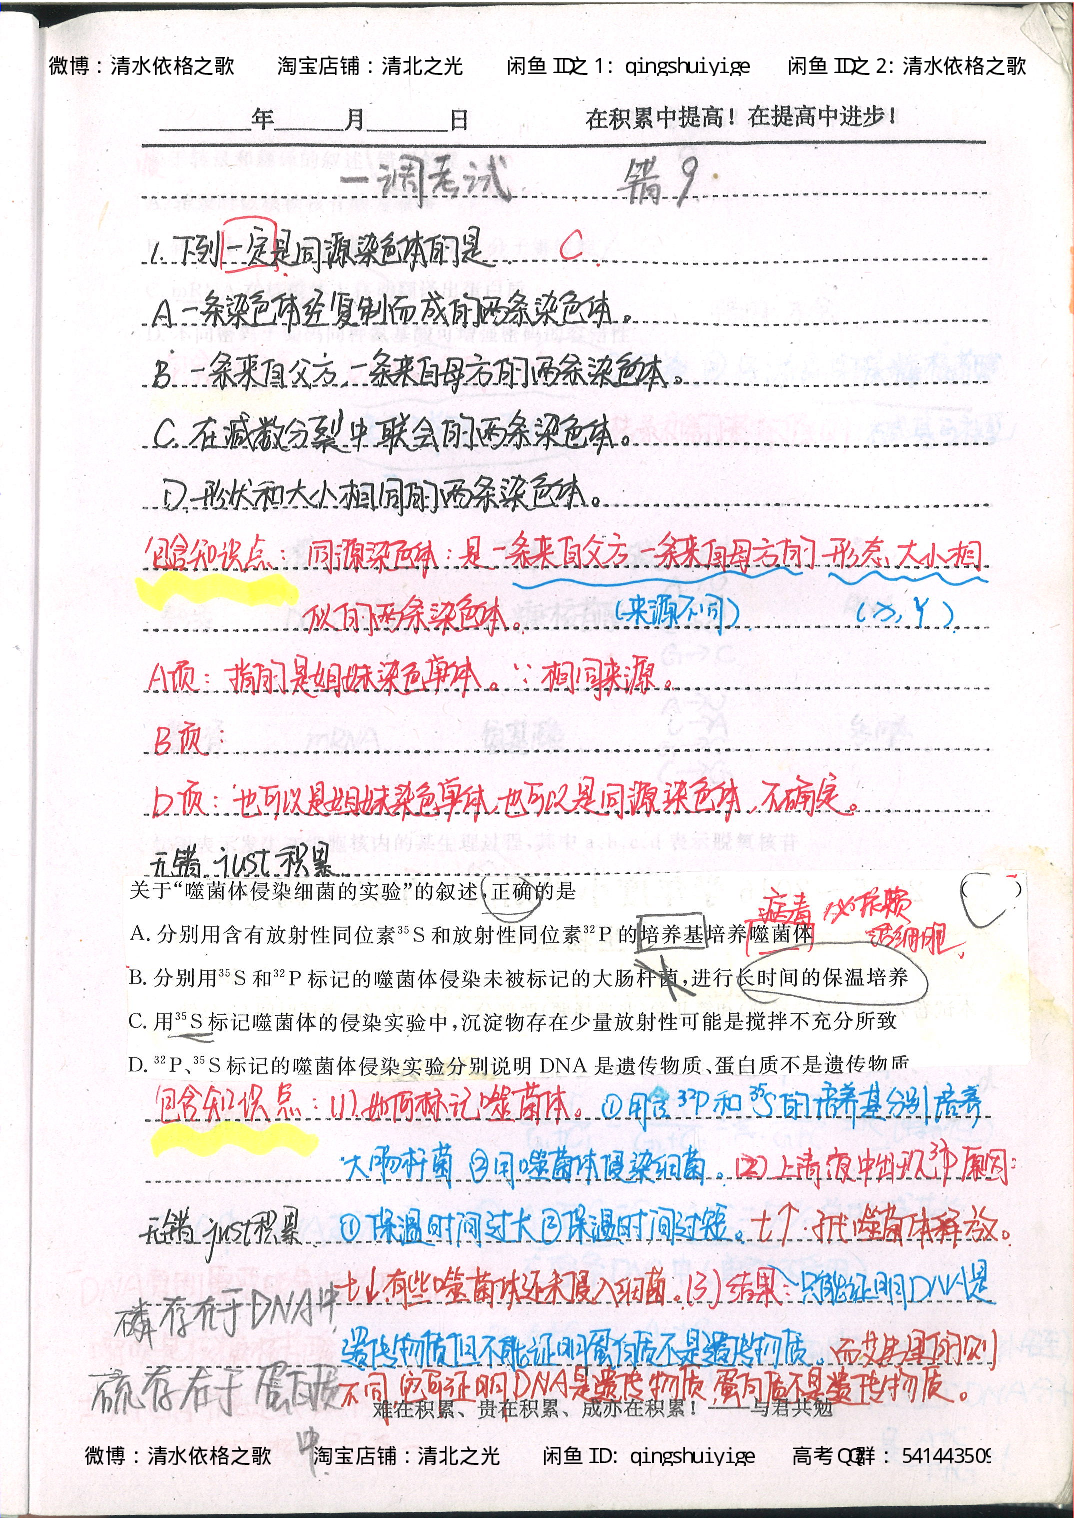 微博：清水依格之歌 淘宝店铺：清北之光 闲鱼 ID之 1: qingshuiyige 闲鱼 ID之 2: 清水依格之歌
年 月 日 在积累中提高！在提高中进步！
一调考试 错9
1. 下列一定是同源染色体的是 C
A 一条染色体经复制而成的两条染色体。
B 一条来自父方,一条来自母方的两条染色体。
C. 在减数分裂中联会的两条染色体。
D. 形状和大小相同的两条染色体。
包含知识点：同源染色体：是一条来自父方一条来自母方的形态大小相
似的两条染色体。 (来源不同) (X,Y)
A项：指的是姐妹染色单体。∵相同来源。
B项：
D项：也可以是姐妹染色单体,也可以是同源染色体,不确定。
无错 just 积累
关于“噬菌体侵染细菌的实验”的叙述,正确的是
病毒 必依赖
A. 分别用含有放射性同位素³⁵S 和放射性同位素³²P 的培养基培养噬菌体 活细胞
B. 分别用³⁵S 和³²P 标记的噬菌体侵染未被标记的大肠杆菌,进行长时间的保温培养
C. 用³⁵S 标记噬菌体的侵染实验中,沉淀物存在少量放射性可能是搅拌不充分所致
D. ³²P、³⁵S 标记的噬菌体侵染实验分别说明 DNA 是遗传物质、蛋白质不是遗传物质
包含知识点：(1).如何标记噬菌体。①用含³²P和³⁵S的培养基分别培养
大肠杆菌 ②用噬菌体侵染细菌。(2)上清液中出现³²P原因：
无错 just积累 ①保温时间过长②保温时间过短。t↑ 子代噬菌体释放。
t↓有些噬菌体还未侵入细菌。(3)结果：只能证明DNA是
磷存在于DNA中,
遗传物质但不能证明蛋白质不是遗传物质。而艾
硫存在于蛋白质中
不同,实验证明DNA是遗传物质,蛋白质不是遗传物质。
难在积累、贵在积累、成亦在积累！——与君共勉
微博：清水依格之歌 淘宝店铺：清北之光 闲鱼 ID: qingshuiyige 高考QQ群：541443509